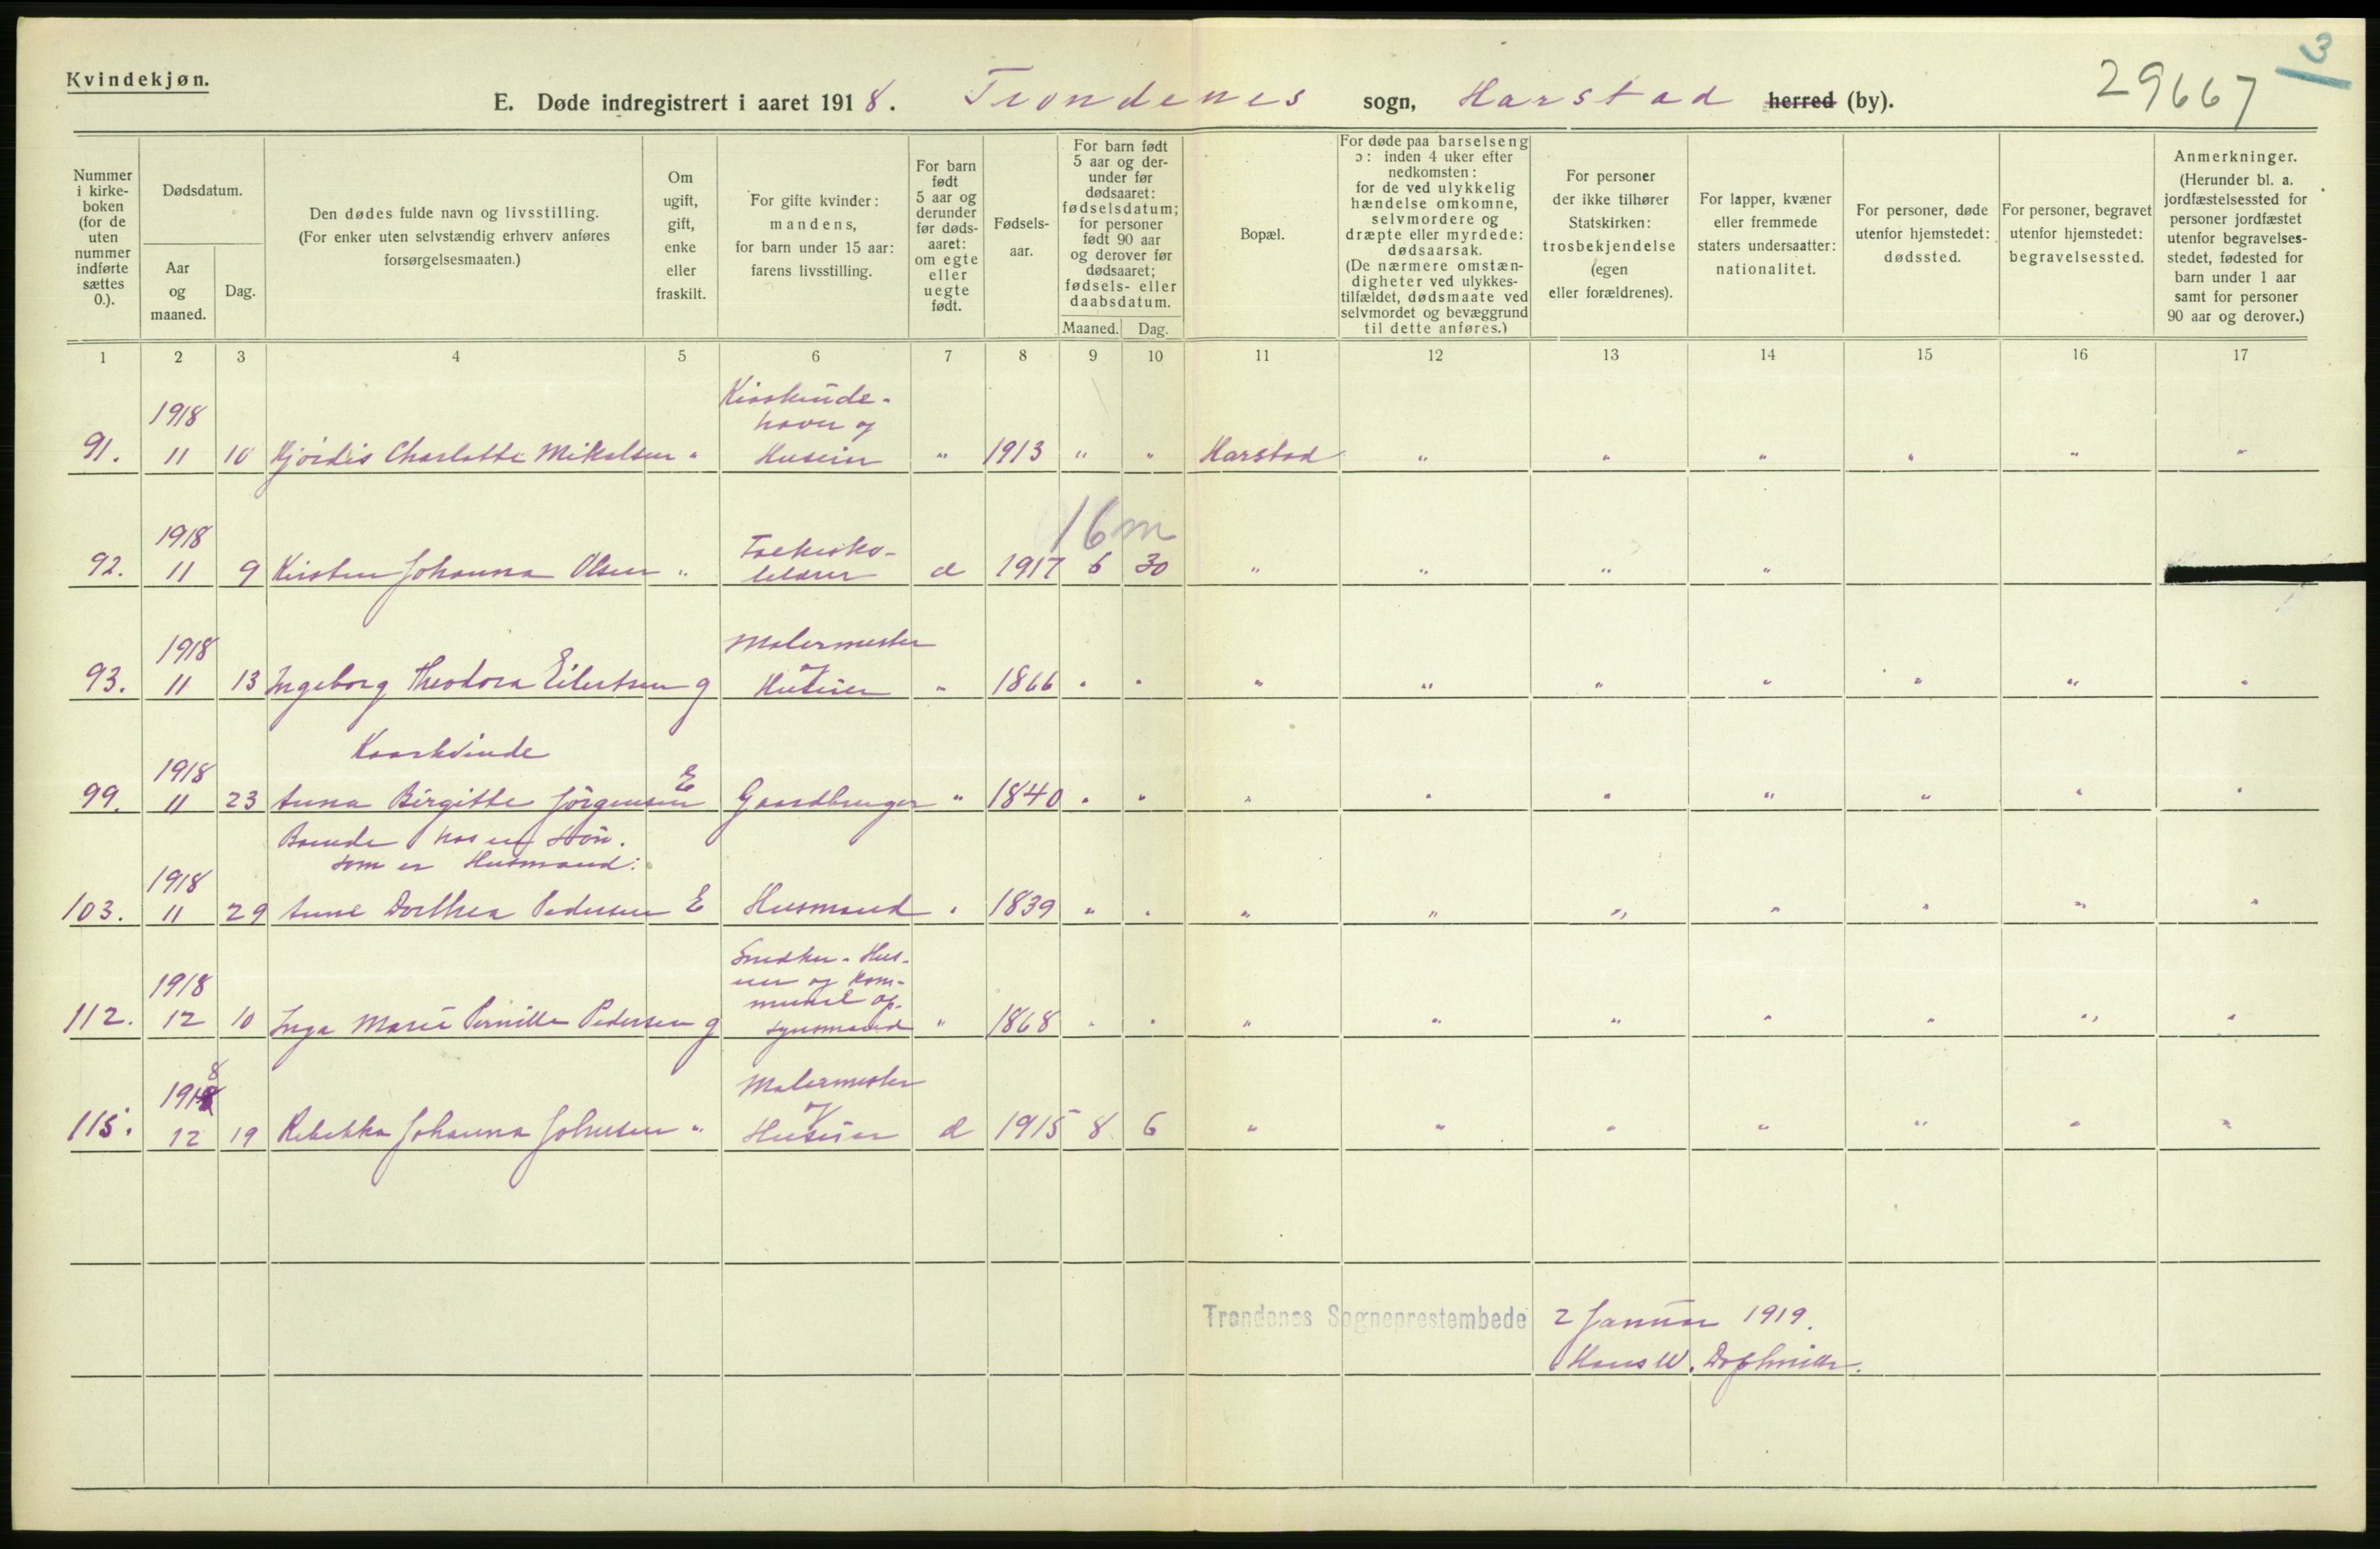 Kvindekjøn.
E. Døde indregistrert i aaret 1918. Trondenes sogn, Harstad herred (by). 29667 3
Nummer i kirke-boken (for de uten nummer indførte sættes 0.).
Dødsdatum.
Aar og maaned.
Dag.
Den dødes fulde navn og livsstilling.
(For enker uten selvstændig erhverv anføres
forsørgelsesmaaten.)
Om ugift, gift, enke eller fraskilt.
For gifte kvinder:
mandens,
for barn under 15 aar:
farens livsstilling.
For barn født 5 aar og derunder før døds-aaret: om egte eller uegte født.
Fødsels-aar.
For barn født 5 aar og der-under før dødsaaret: fødselsdatum; for personer født 90 aar og derover før dødsaaret; fødsels- eller daabsdatum.
Maaned. Dag.
Bopæl.
For døde paa barselseng
ɔ: inden 4 uker efter
nedkomsten:
for de ved ulykkelig
hændelse omkomne,
selvmordere og
dræpte eller myrdede:
dødsaarsak.
(De nærmere omstæn-
digheter ved ulykkes-
tilfældet, dødsmaate ved
selvmordet og bevæggrund
til dette anføres.)
For personer
der ikke tilhører
Statskirken:
trosbekjendelse
(egen
eller forældrenes).
For lapper, kvæner
eller fremmede
staters undersaatter:
nationalitet.
For personer, døde
utenfor hjemstedet:
dødssted.
For personer, begravet
utenfor hjemstedet:
begravelsessted.
Anmerkninger.
(Herunder bl. a.
jordfæstelsessted for
personer jordfæstet
utenfor begravelses-
stedet, fødested for
barn under 1 aar
samt for personer
90 aar og derover.)
1 2 3 4 5 6 7 8 9 10 11 12 13 14 15 16 17
1918
haver og
91. 11 10 Hjördis Charlotte Mikalsen " Huseier " 1913 " " Harstad " " " " " "
1918 16 m
92. 11 9 Kirsten Johanna Olsen " d 1917 6 30 " " " "
1918 Malermester og
93. 11 13 Ingeborg Theodora Eilertsen g Huseier " 1866 " " " " " " " " "
1918 Kaarkvinde
99. 11 23 Anna Birgitte Jörgensen E Gaardbruger " 1840 " " " " " " " " "
Boende hos en Sön.
1918 som er Husmand:
103. 11 29 Anne Dorthea Pedersen E Husmand " 1839 " " " " " " " " "
Snedker. Hus-
eier og kom-
1918 munal op-
112. 12 10 Inga Marie Pernille Pedersen g synsmand " 1868 " " " " " " " " "
1918 Malermester og
115. 12 19 Rebekka Johanna Johnsen " Huseier d 1915 8 6 " " " " " " "
Trondenes Sogneprestembede 2 Januar 1919.
Hans W.